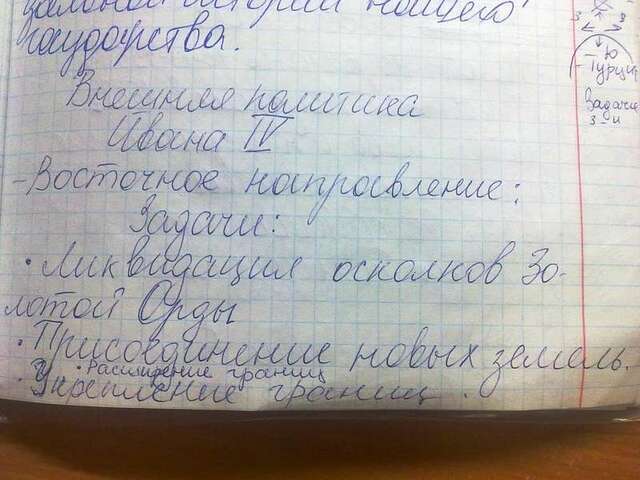 нашего
государства.
Внешняя политика
Ивана IV
- Восточное направление:
Задачи:
• Ликвидация осколков Зо-
лотой Орды
• Присоединение новых земель.
• Расширение границ
• Укрепление границ.
З З
- Ю
- Турци
Задачи
З - и